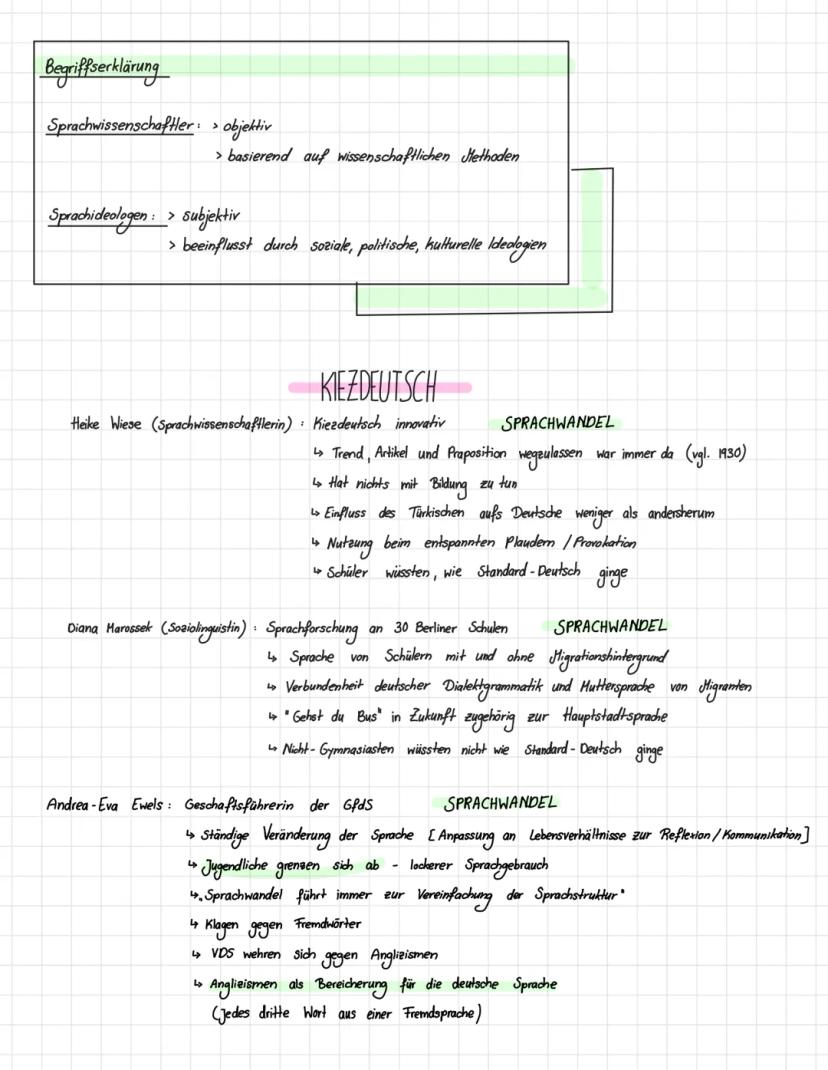 Begriffserklärung
Sprachwissenschaftler: > objektiv
> basierend auf wissenschaftlichen Methoden
Sprachideologen: > subjektiv
> beeinflusst durch soziale, politische, kulturelle Ideologien
KIEZDEUTSCH
Heike Wiese (Sprachwissenschaftlerin): Kiezdeutsch innovativ SPRACHWANDEL
↳ Trend, Artikel und Praposition wegzulassen war immer da (vgl. 1930)
↳ Hat nichts mit Bildung zu tun
↳ Einfluss des Türkischen aufs Deutsche weniger als andersherum
↳ Nutzung beim entspannten Plaudern / Provokation
↳ Schüler wüssten, wie Standard-Deutsch ginge
Diana Marossek (Soziolinguistin): Sprachforschung an 30 Berliner Schulen SPRACHWANDEL
↳ Sprache von Schülern mit und ohne Migrationshintergrund
↳ Verbundenheit deutscher Dialektgrammatik und Muttersprache von Migranten
↳ "Gehst du Bus" in Zukunft zugehörig zur Hauptstadtsprache
↳ Nicht-Gymnasiasten wüssten nicht wie Standard-Deutsch ginge
Andrea-Eva Ewels: Geschaftsführerin der GfdS SPRACHWANDEL
↳ Ständige Veränderung der Sprache [Anpassung an Lebensverhältnisse zur Reflexion/Kommunikation]
↳ Jugendliche grenzen sich ab - lockerer Sprachgebrauch
↳ „Sprachwandel führt immer zur Vereinfachung der Sprachstruktur"
↳ Klagen gegen Fremdwörter
↳ VDS wehren sich gegen Anglizismen
↳ Anglizismen als Bereicherung für die deutsche Sprache
(Jedes dritte Wort aus einer Fremdsprache)